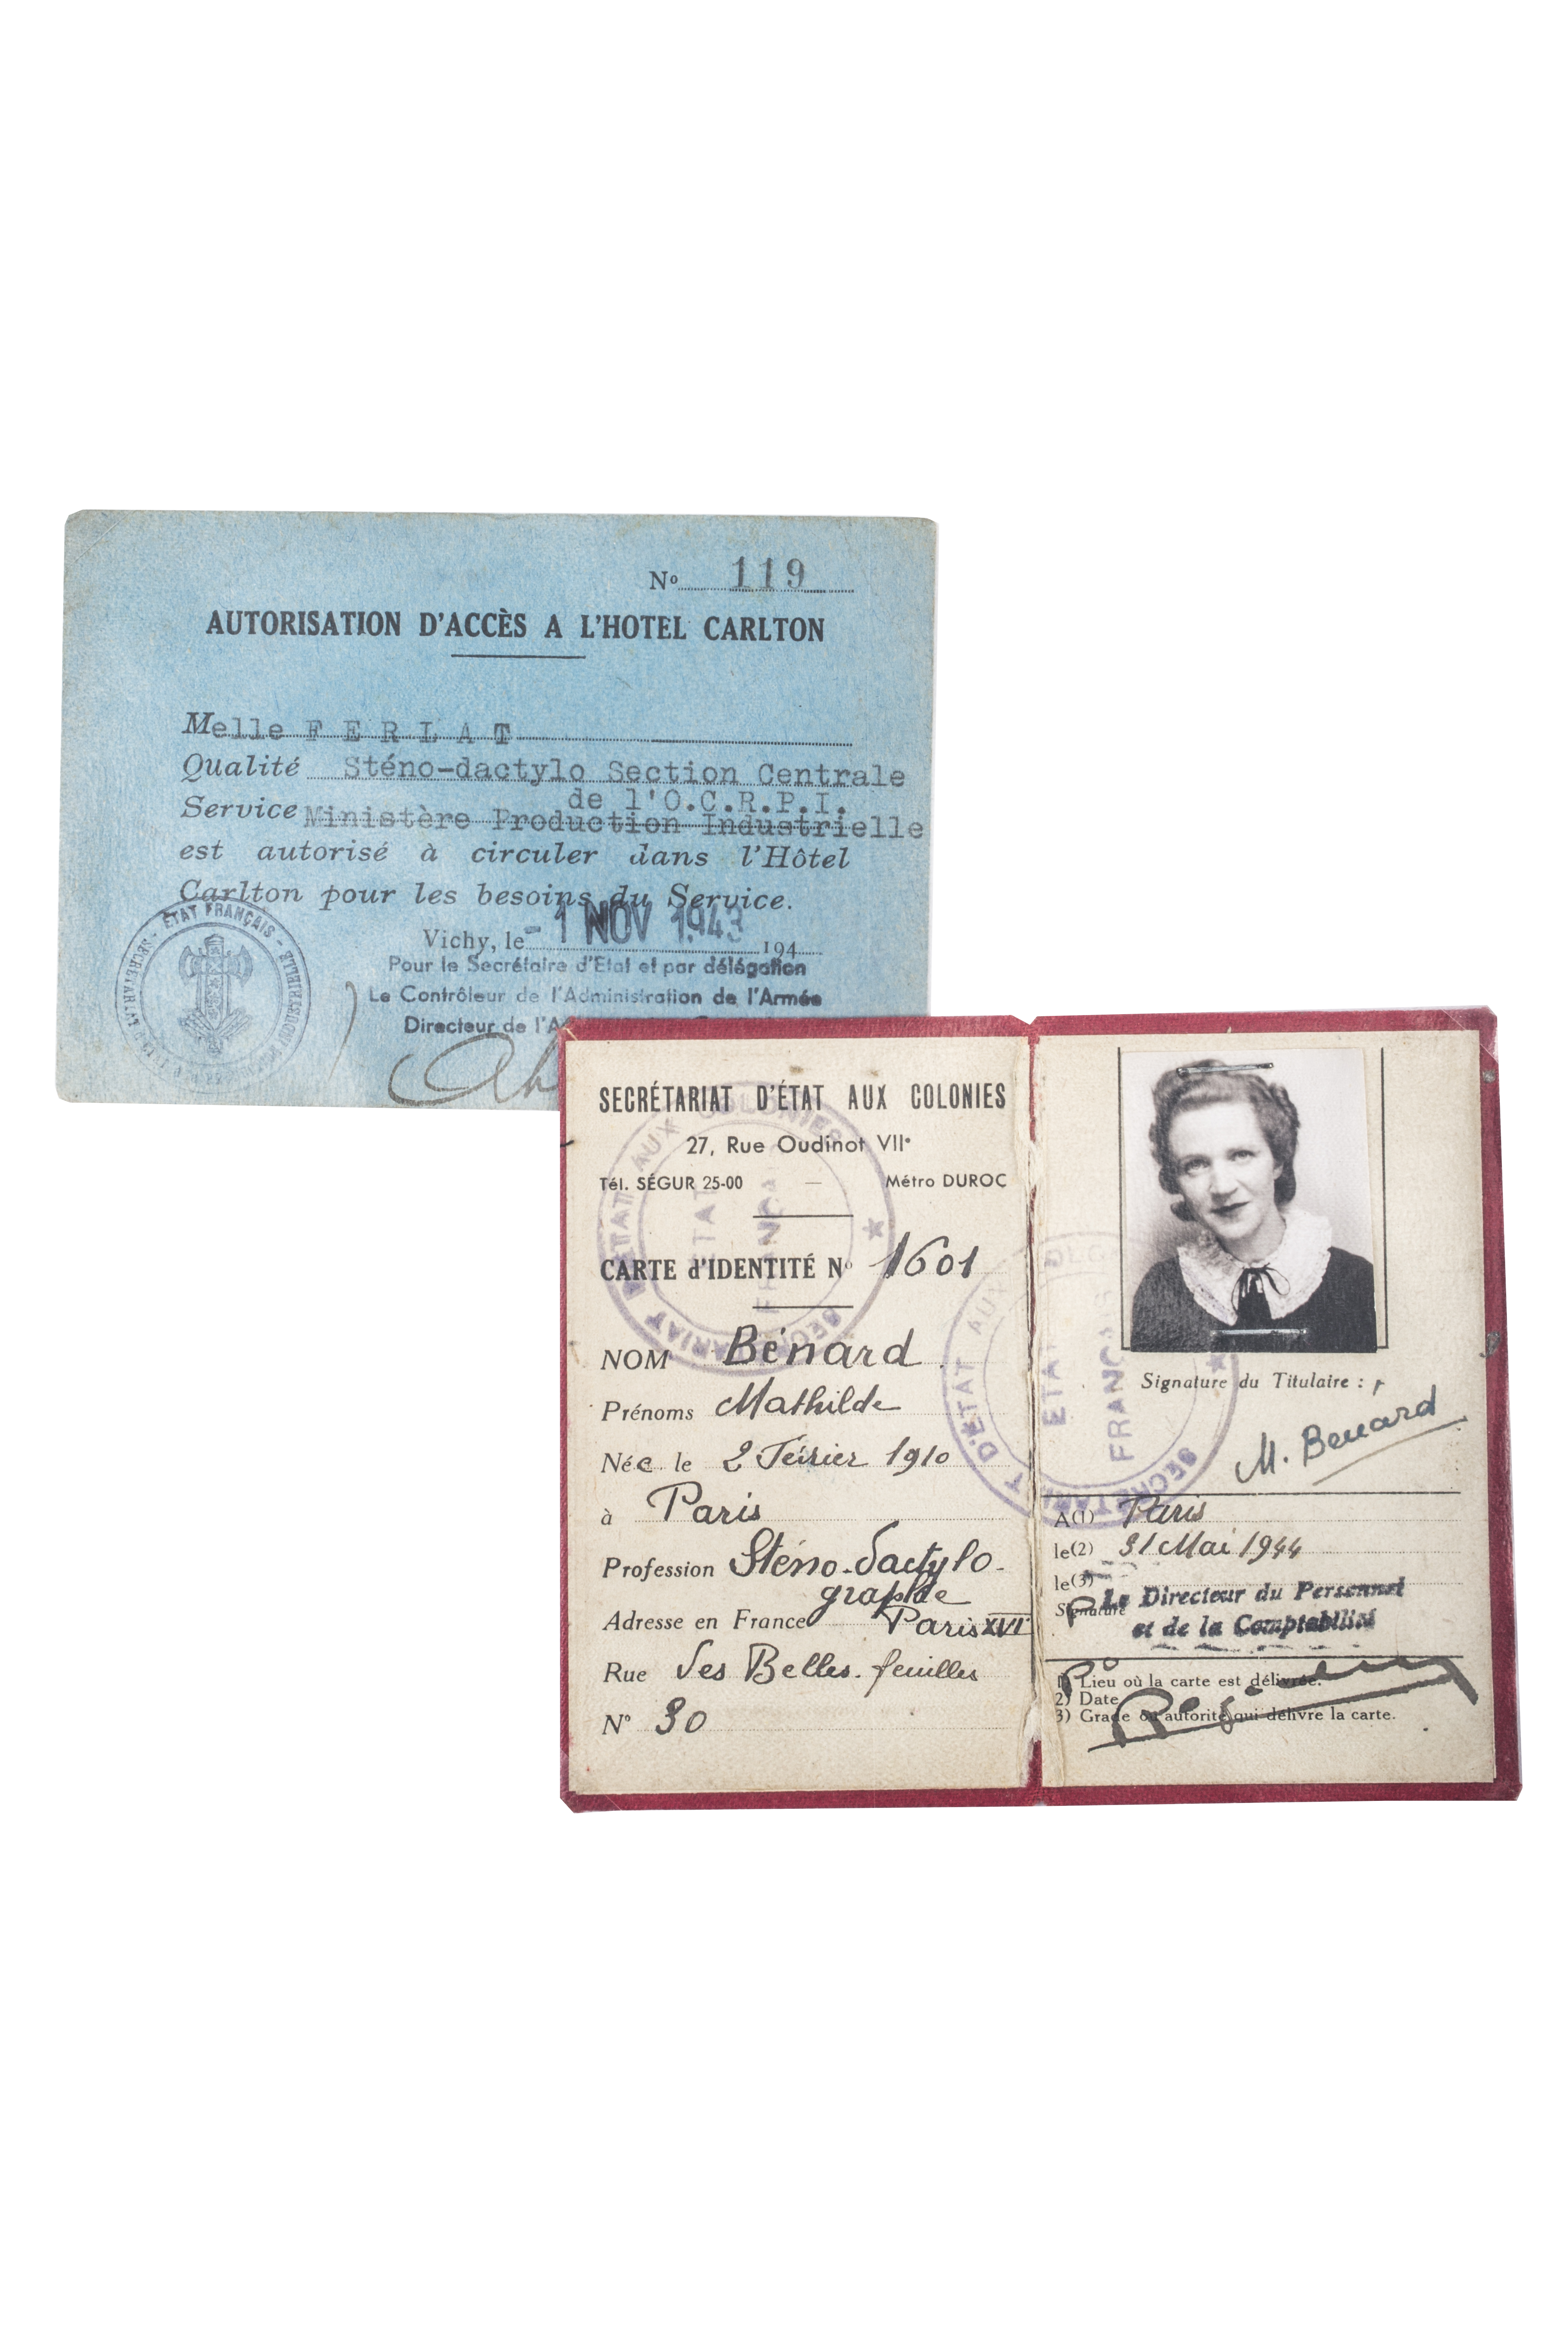 No 119
AUTORISATION D'ACCÈS A L'HOTEL CARLTON
Melle F E R L A T
Qualité Sténo-dactylo Section Centrale
de l'O.C.R.P.I.
Service Ministère Production Industrielle
est autorisé à circuler dans l'Hôtel
Carlton pour les besoins du Service.
Vichy, le - 1 NOV 1943 194
Pour le Secrétaire d'Etat et par délégation
Le Contrôleur de l'Administration de l'Armée
Directeur de l'A
ÉTAT FRANÇAIS
SECRÉTARIAT D'ÉTAT AUX COLONIES
27, Rue Oudinot VIIe
Tél. SÉGUR 25-00 — Métro DUROC
CARTE d'IDENTITÉ No 1601
NOM Bénard
Prénoms Mathilde
Née le 2 Février 1910
à Paris
Profession Sténo-dactylo-
graphe
Adresse en France Paris XVI
Rue des Belles-feuilles
No 30
SECRÉTARIAT D'ÉTAT AUX COLONIES
ÉTAT FRANÇAIS
Signature du Titulaire :
M. Benard
A(1) Paris
le(2) 31 Mai 1944
le(3)
Signature
Le Directeur du Personnel
et de la Comptabilité
1) Lieu où la carte est délivrée.
2) Date
3) Grade ou autorité qui délivre la carte.
SECRÉTARIAT D'ÉTAT AUX COLONIES
ÉTAT FRANÇAIS